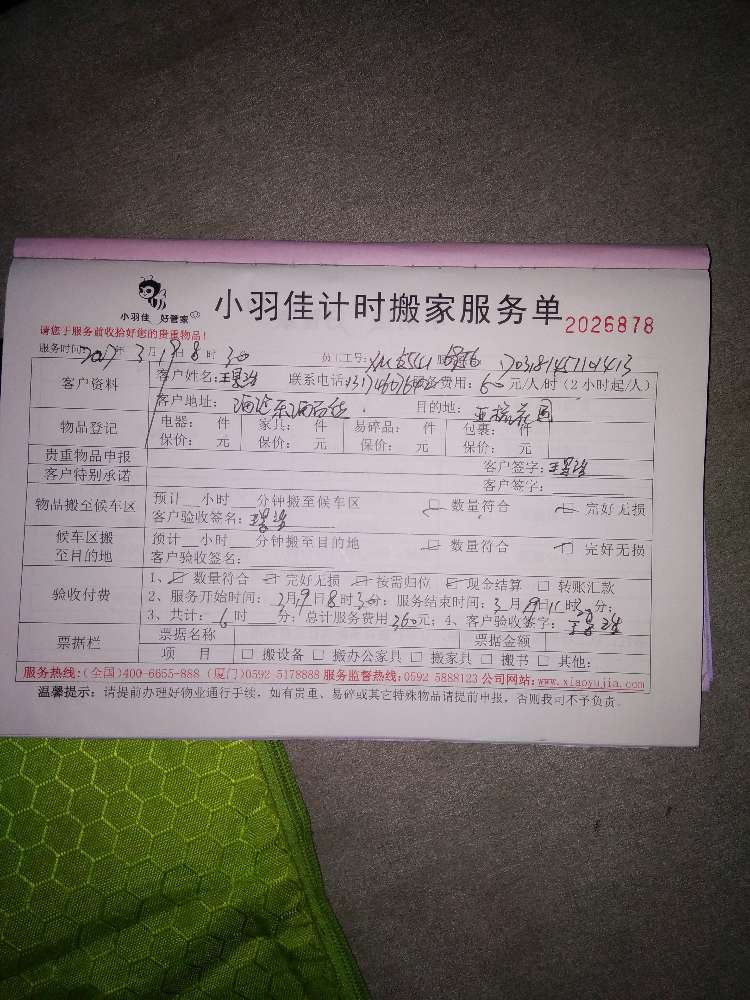 小羽佳 好管家
小羽佳计时搬家服务单 2026878
请您于服务前收拾好您的贵重物品!
服务时间: 2017年3月19日8时30 员工工号: 703181457101413
客户资料 客户姓名: 联系电话: 费用: 60元/人/时(2小时起/人)
客户地址: 目的地:
物品登记 电器: 件 家具: 件 易碎品: 件 包裹: 件
保价: 元 保价: 元 保价: 元 保价: 元
贵重物品申报 客户签字:
客户特别承诺 客户签字:
物品搬至候车区 预计__小时__分钟搬至候车区 □ 数量符合 □ 完好无损
客户验收签名:
候车区搬至目的地 预计__小时__分钟搬至目的地 □ 数量符合 □ 完好无损
客户验收签名:
验收付费 1、□ 数量符合 □ 完好无损 □ 按需归位 □ 现金结算 □ 转账汇款
2、服务开始时间: 3月19日8时30分; 服务结束时间: 3月19日11时30分;
3、共计: 6时__分; 总计服务费用360元; 4、客户验收签字:
票据栏 票据名称 票据金额
项 目 □ 搬设备 □ 搬办公家具 □ 搬家具 □ 搬书 □ 其他:
服务热线:(全国)400-6655-888 (厦门)0592 5178888 服务监督热线:0592 5888123 公司网站:www.xiaoyujia.com
温馨提示: 请提前办理好物业通行手续, 如有贵重、易碎或其它特殊物品请提前申报, 否则我司不予负责。